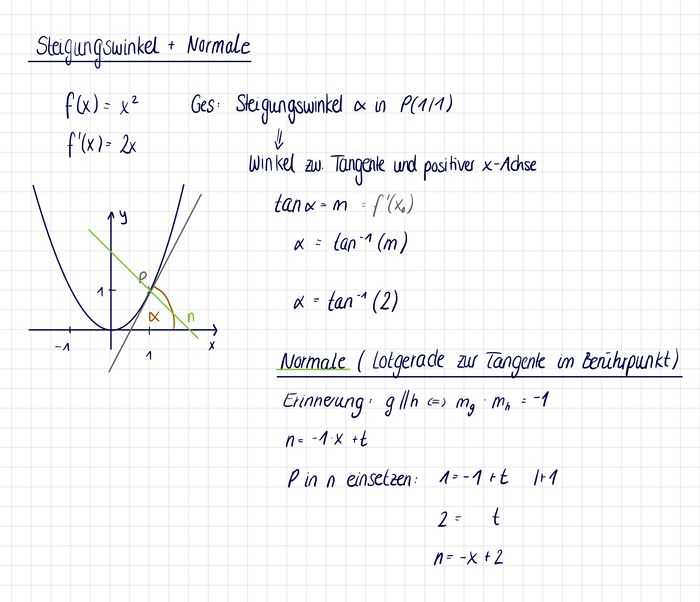 Steigungswinkel + Normale
f(x) = x²
Ges: Steigungswinkel α in P(1/1)
f'(x) = 2x
⇓
Winkel zw. Tangente und positiver x-Achse
tan α = m = f'(x₀)
α = tan⁻¹(m)
α = tan⁻¹(2)
y
P
1
α
n
-1
1
x
Normale (Lotgerade zur Tangente im Berührpunkt)
Erinnerung: g//h (=) m_g · m_h = -1
n = -1·x + t
P in n einsetzen: 1 = -1 + t |+1
2 = t
n = -x + 2